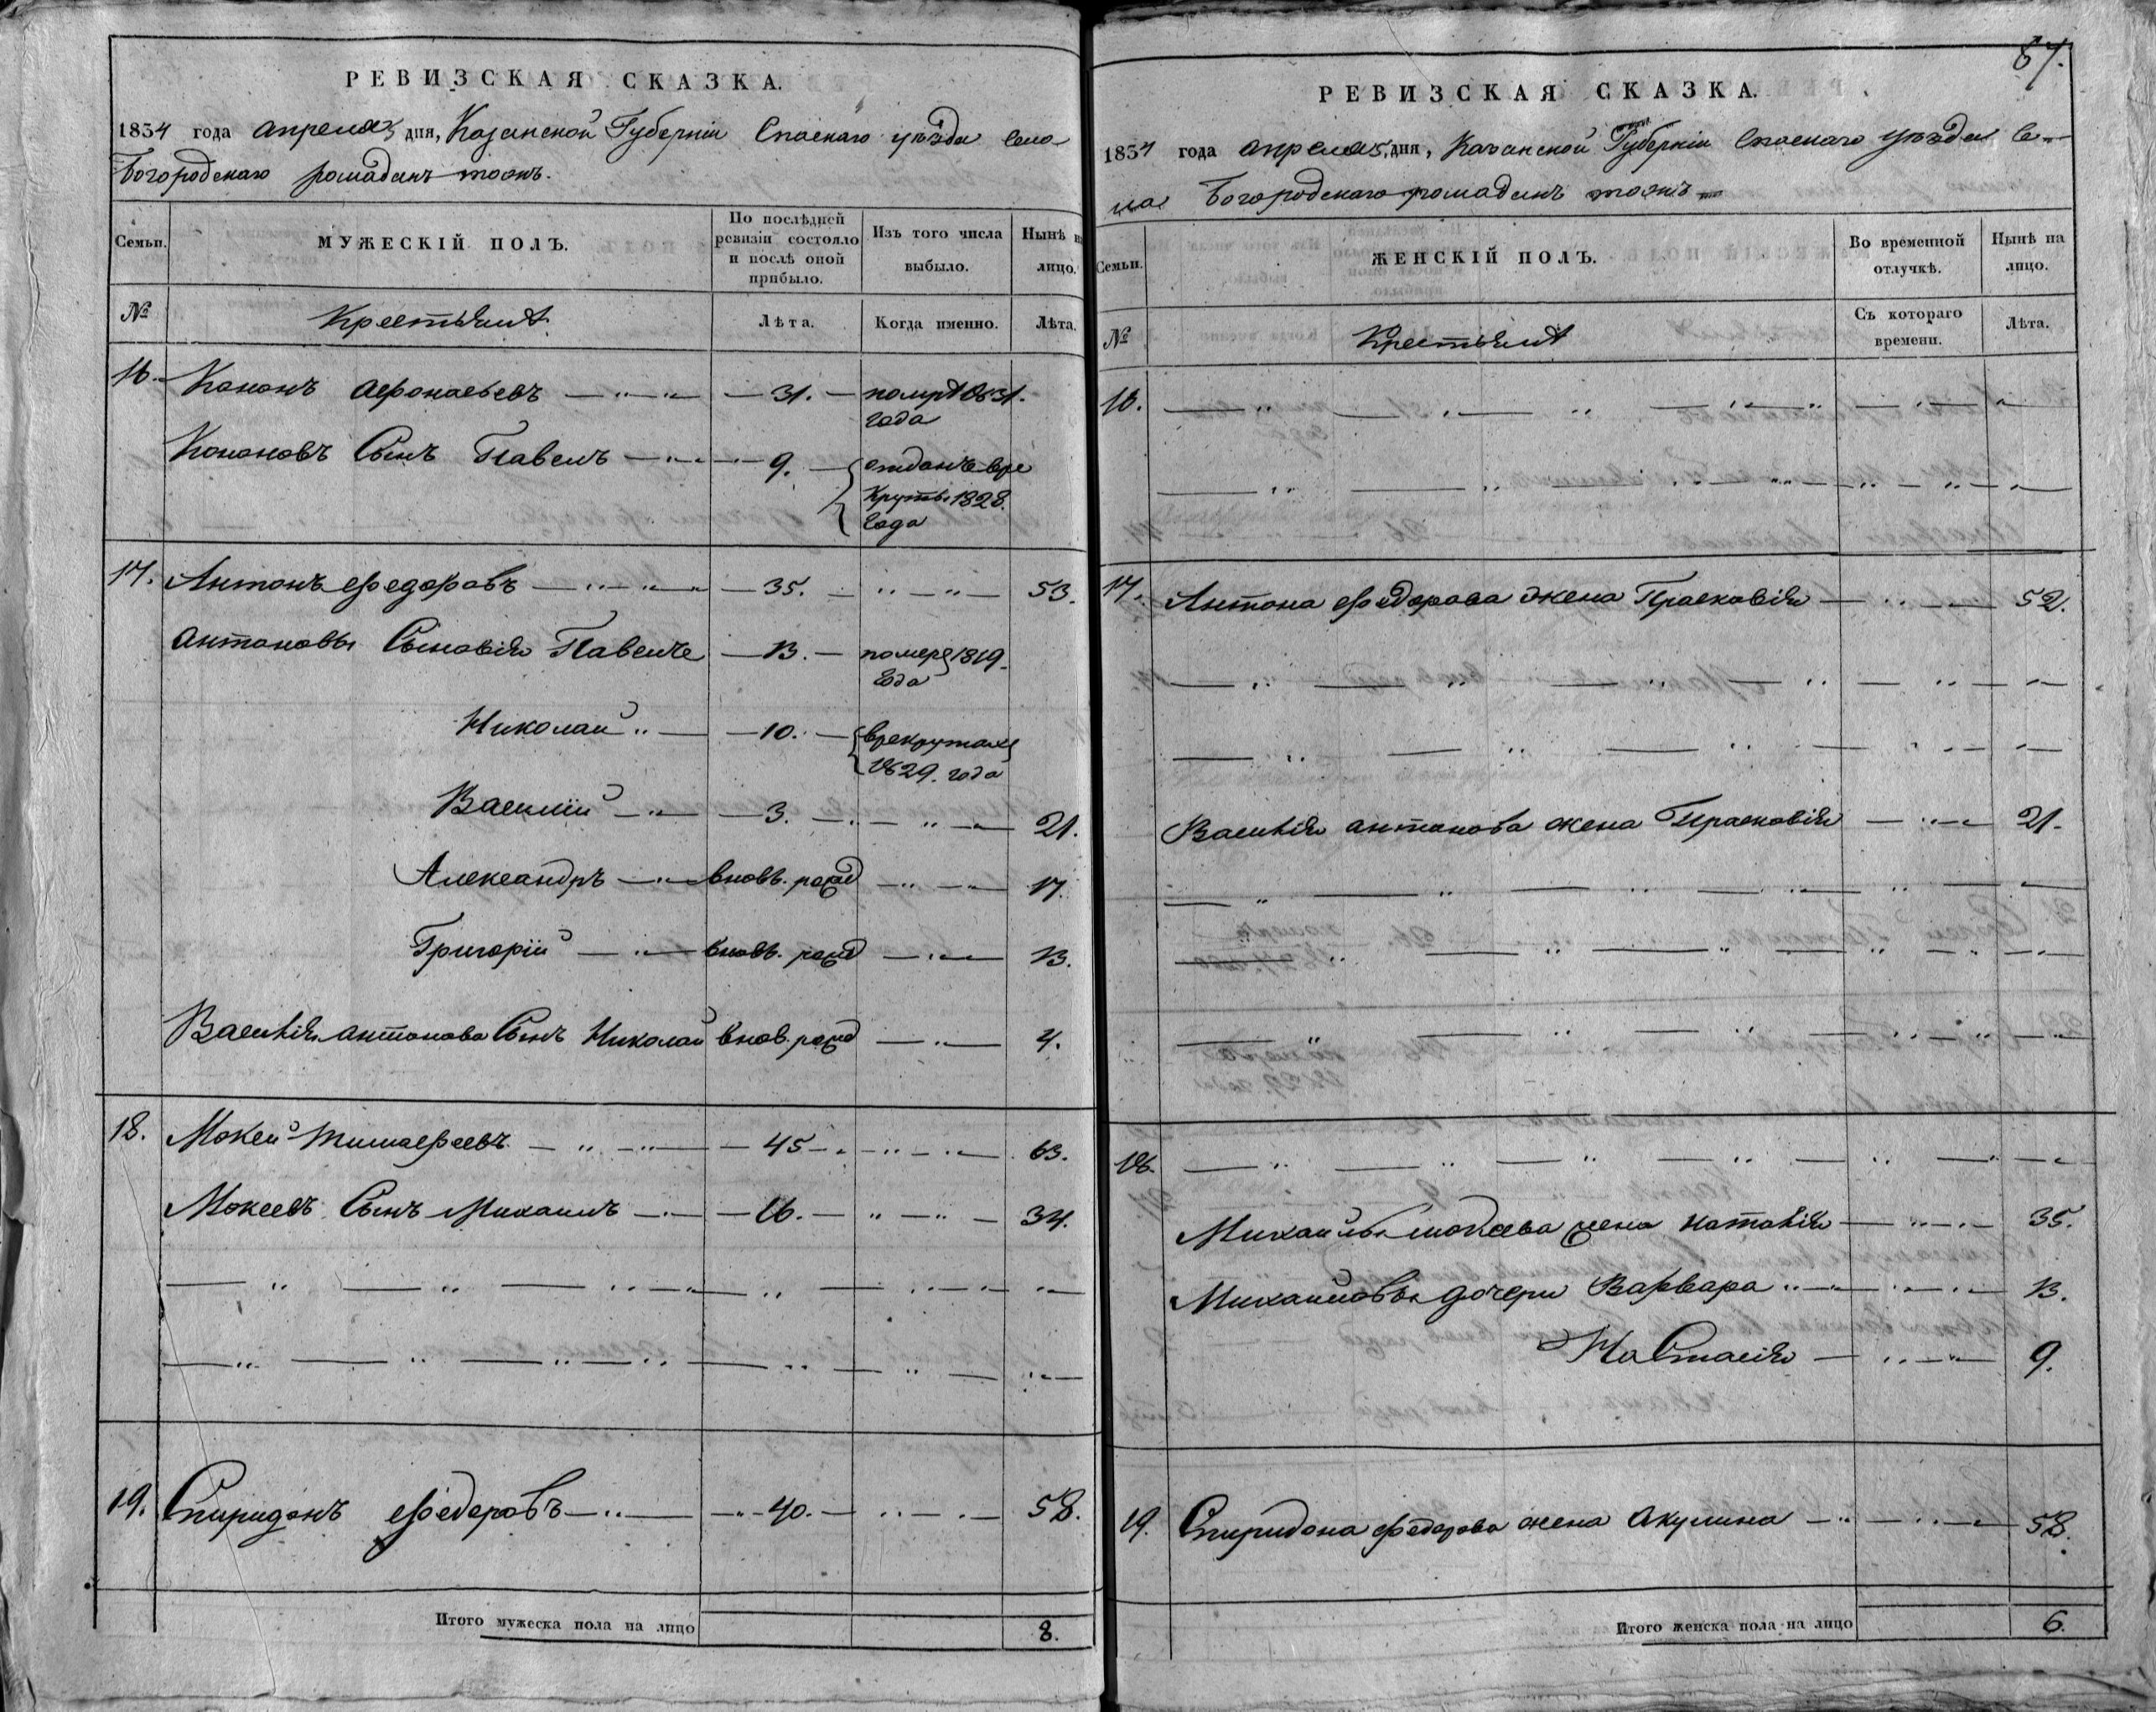 РЕВИЗСКАЯ СКАЗКА.
1834 года апреля дня, Казанской Губерніи Спаскаго уѣзда села
Богородскаго ромаданъ тожъ.
Семьи. МУЖЕСКІЙ ПОЛЪ. По послѣдней ревизіи состояло и послѣ оной прибыло. Изъ того числа выбыло. Нынѣ на лицо.
№ Крестьяня Лѣта. Когда именно. Лѣта.
16. Кононъ Афонасьевъ 31. помре 1831.
года
Кононовъ Сынъ Павелъ 9. отданъ вре
круты 1828.
года
17. Антонъ Федоровъ 35. 53.
Антоновы Сыновія Павелъ 13. померъ 1819.
года
Николай 10. врекрутах
1829. года
Василій 3. 21.
Александръ вновь. рожд 17.
Григорій вновь. рожд 13.
Василія антонова Сынъ Николай внов. рожд 4.
18. Мокей Тимофеевъ 45 63.
Мокеевъ Сынъ Михаилъ 16. 34.
19. Спиридонъ Федоровъ 40. 58.
Итого мужеска пола на лицо 8.
87.
РЕВИЗСКАЯ СКАЗКА.
1834 года апреля дня, Казанской Губерніи Спаскаго уѣзда Се
ла Богородскаго ромаданъ тожъ
Семьи. ЖЕНСКІЙ ПОЛЪ. Во временной отлучкѣ. Нынѣ на лицо.
№ Крестьяня Съ котораго времени. Лѣта.
16.
17. Антона Федорова жена Прасковія 52.
Василія антонова жена Прасковія 21.
18.
Михайлы мокеева жена Наталія 35.
Михайловы дочери Варвара 13.
Настасія 9.
19. Спиридона Федорова жена Акулина 58.
Итого женска пола на лицо 6.